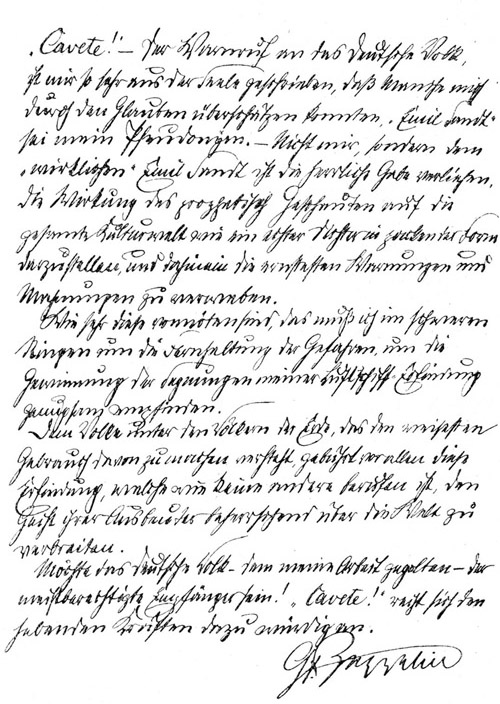 „Cavete!“ – Der Warnruf an das Deutsche Volk,
ist mir so sehr aus der Seele geschrieben, daß Manche mich
durch den Glauben überschätzen konnten, „Emil Sandt“
sei mein Pseudonym. – Nicht mir, sondern dem
„wirklichen“ Emil Sandt ist die herrliche Gabe verliehen,
die Wirkung des prophetisch Geschauten auf die
gesamte Kulturwelt wie ein echter Dichter in packender Form
darzustellen, und dahinein die ernstesten Warnungen und
Mahnungen zu verweben.
Wie sehr diese vonnöten sind, das muß ich im schweren
Ringen um die Fernhaltung der Gefahren, um die
Gewinnung der Segnungen meiner Luftschiff-Erfindung
genugsam empfinden.
Dem Volke unter den Völkern der Erde, das den weisesten
Gebrauch davon zu machen versteht, gebührt vor allen diese
Erfindung, welche wie keine andere berufen ist, den
Geist ihrer Ausbeuter beherrschend über die Welt zu
verbreiten.
Möchte das deutsche Volk – dem meine Arbeit gegolten – der
meistberechtigte Empfänger sein! „Cavete!“ reiht sich den
hebenden Kräften dazu würdig an.
Gf. Zeppelin